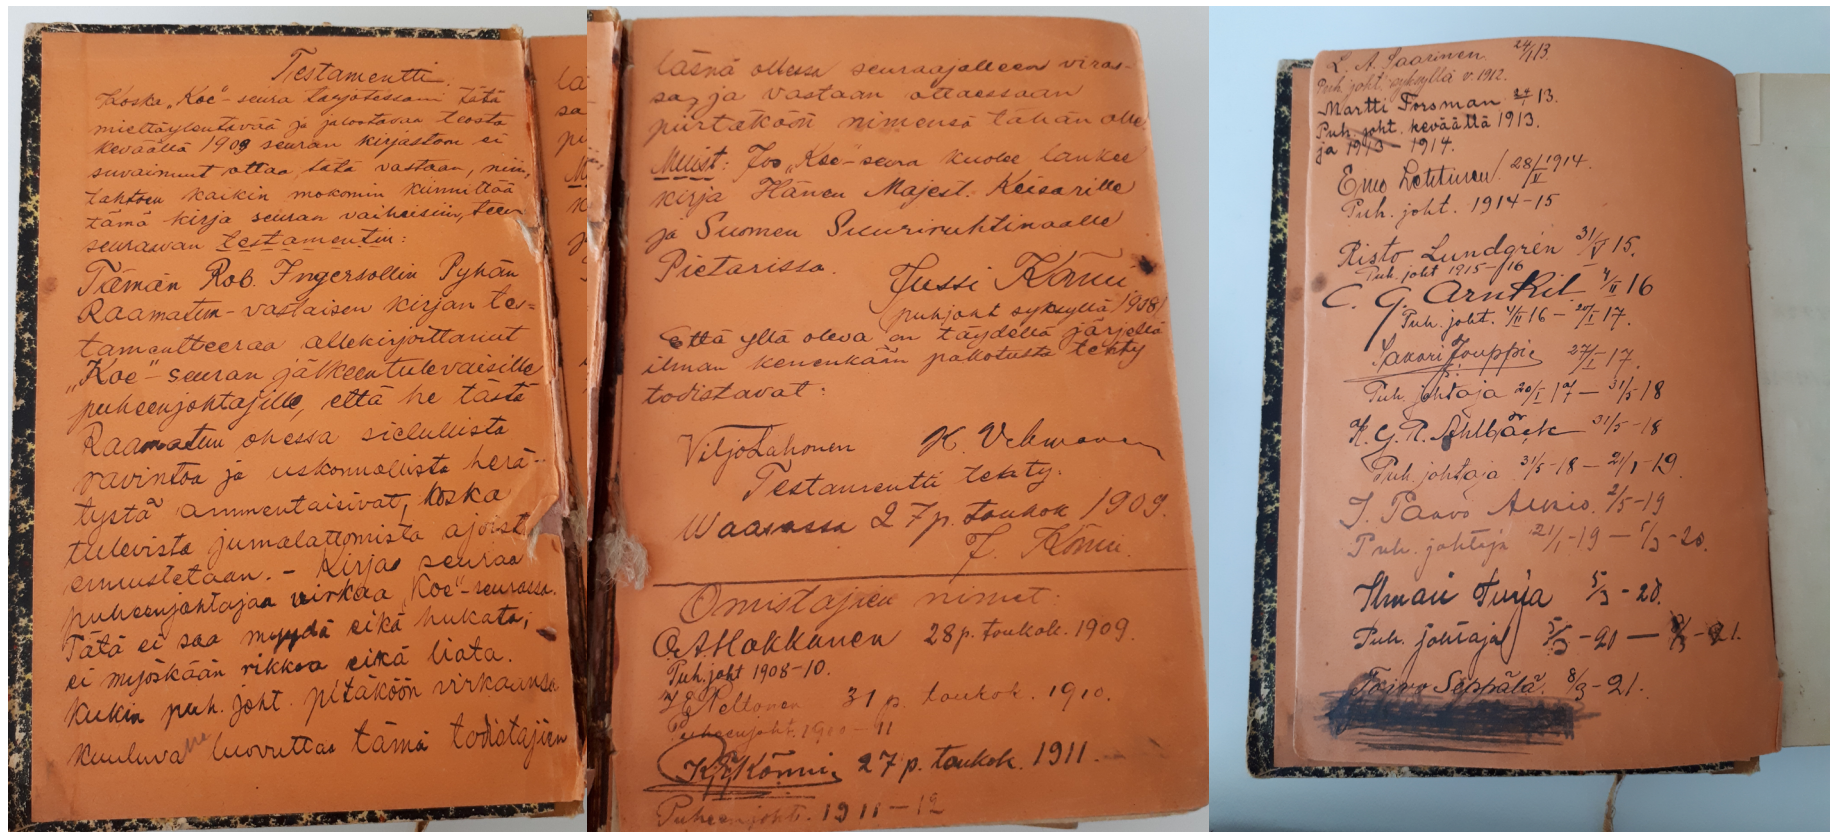 Testamentti.
Koska „Koe"-seura tarjotessani tätä
mieltäylentävää ja jalostavaa teosta
keväällä 1909 seuran kirjastoon ei
suvainnut ottaa sitä vastaan, niin,
tahtoen kaikin mokomin kiinnittää
tämä kirja seuran vaiheisiin, teen
seuraavan testamentin:
Tämän Rob. Ingersollin Pyhän
Raamatun-vastaisen kirjan tes-
tamentteeraa allekirjoittanut
„Koe"-seuran jälkeentulevaisille
puheenjohtajille, että he tästä
Raamatun ohessa sielullista
ravintoa ja uskonnollista herä-
tystä ammentaisivat, koska
tulevista jumalattomista ajoista
ennustetaan. - Kirja seuraa
puheenjohtajan virkaa „Koe"-seurassa.
Tätä ei saa myydä eikä hukata;
ei myöskään rikkoa eikä liata.
Kukin puh. joht. pitäköön virkaansa
kuuluvana luovuttaa tämä todistajien
läsnä ollessa seuraajalleen viras-
sa, ja vastaan ottaessaan
piirtäköön nimensä tähän alle.
Muist: Jos „Koe"-seura kuolee lankee
kirja Hänen Majest. Keisarille
ja Suomen Suuriruhtinaalle
Pietarissa.
Jussi Könni
puhjoht syksyllä 1908
Että yllä oleva on täydellä järjellä
ilman kenenkään pakotusta tehty
todistavat:
Viljo Lahonen K.
Testamentti tehty.
Waasassa 27 p. toukok 1909.
J. Könni.
Omistajien nimet:
O. A. Hakkanen 28 p. toukok. 1909.
Puh. joht 1908-10.
Peltonen 31 p. toukok. 1910.
Puheenjoht. 1910-11
K. Könni 27 p. toukok. 1911.
Puheenjoht. 1911-12
L. A. Saarinen 24/1 13.
Puh. joht. syksyllä v. 1912.
Martti Forsman 13.
Puh. joht. keväällä 1913.
ja 1913 1914.
Eino Lehtinen 28/II 1914.
Puh. joht. 1914-15
Risto Lundgrén 31/V 15.
Puh. joht 1915-16
C. G. Arnkil 4/II 16
Puh. joht. 4/II 16 - 27/I 17.
Sakari Jouppi 27/I-17.
Puh. johtaja 20/I 17 - 31/5 18
K. G. R. Ahlbäck 31/5-18
Puh. johtaja 31/5-18 - 21/1-19.
J. Paavo 2/5-19
Puh. johtaja 21/1-19 - 5/3-20.
Ilmari Tuija 5/3-20.
Puh. johtaja 5/3-20 - 8/3-21.
Toivo Seppälä. 8/3-21.